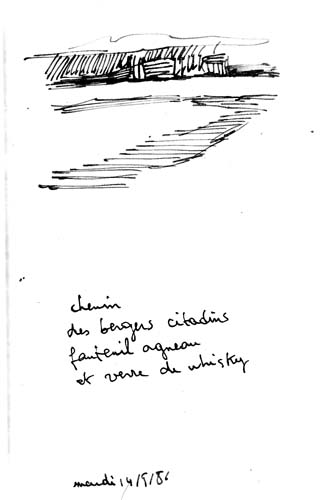 chemin
des bergers citadins
fauteuil agneau
et verre de whisky
mardi 14/9/86